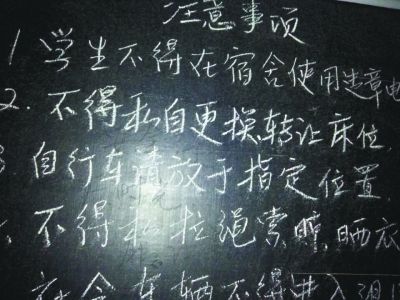 注意事项
1 学生不得在宿舍使用违章电
2. 不得私自更换、转让床位
3 自行车请放于指定位置
不得私拉绳索,晾晒衣
社会车辆不得进入